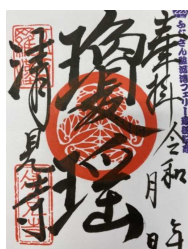 奉拝 令和 年 月 日
瓊瑶
清見寺